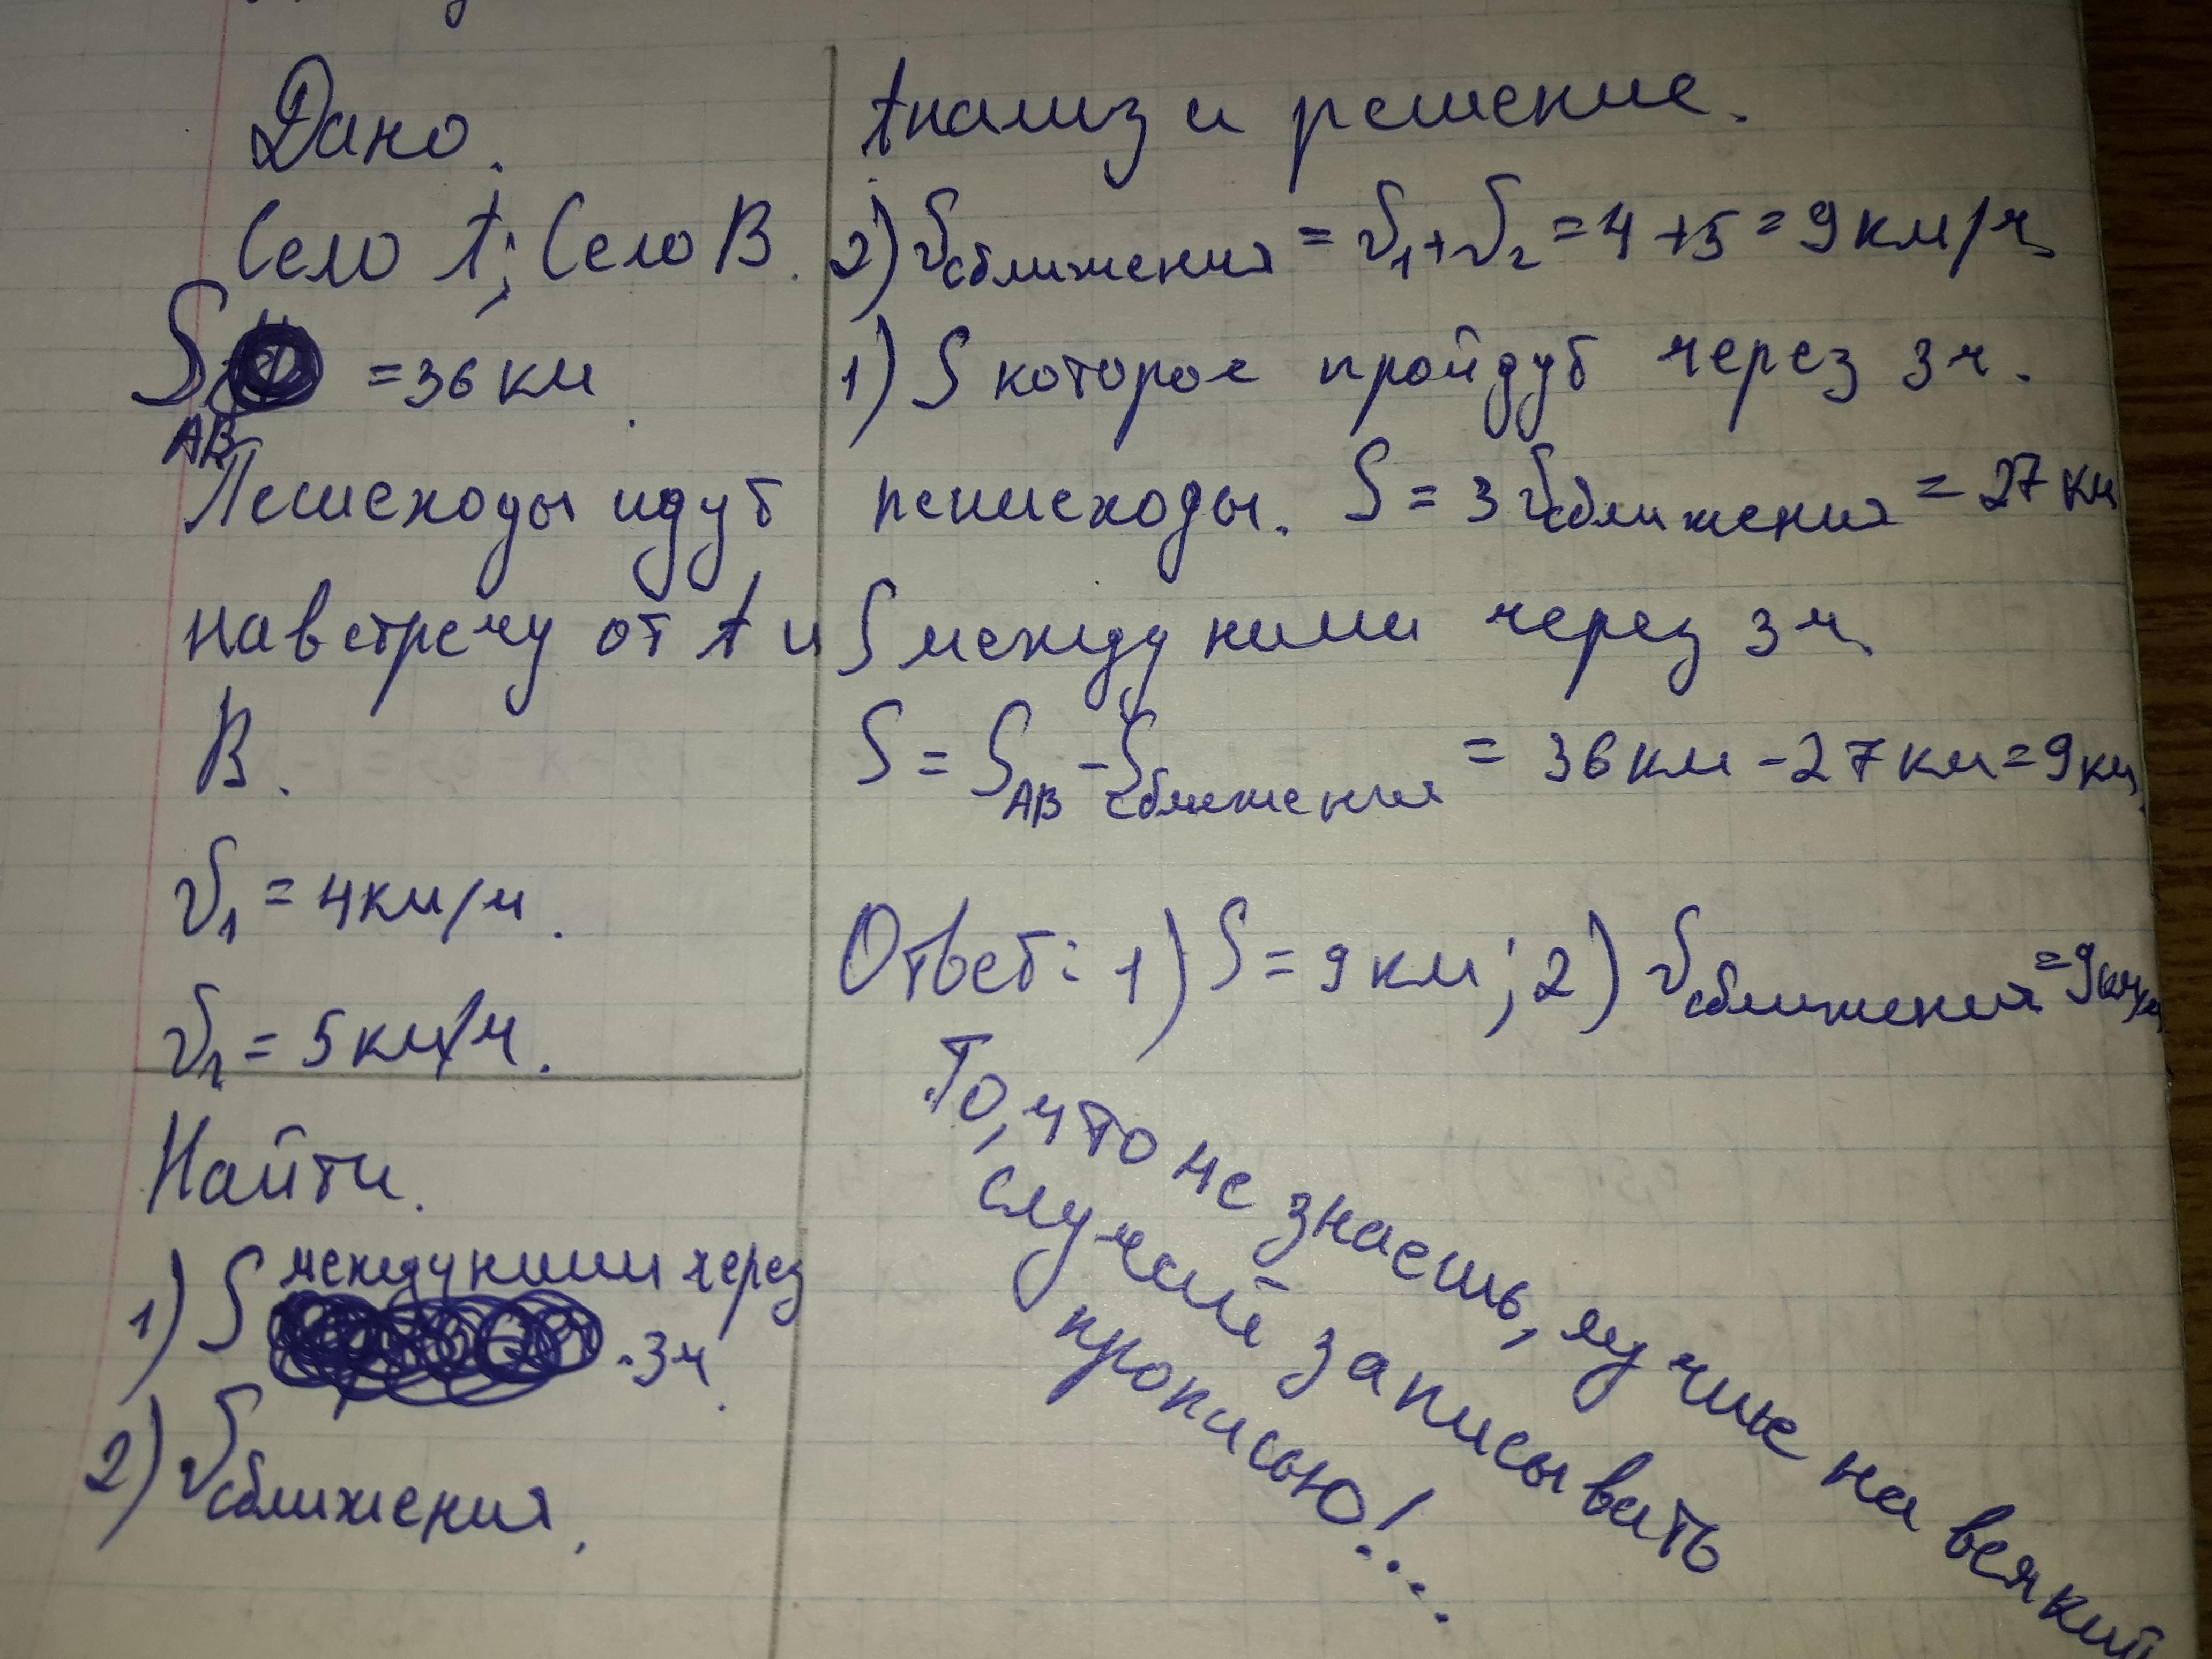 Дано.
Село A; Село B.
S
AB
= 36 км.
Пешеходы идут
навстречу от A и
B.
V1 = 4 км/ч.
V2 = 5 км/ч.
Найти.
1) S между ними через
3ч.
2) Vсближения.
Анализ и решение.
2) Vсближения = V1 + V2 = 4 + 5 = 9 км/ч
1) S которое пройдут через 3ч.
пешеходы. S = 3 Vсближения = 27 км
S между ними через 3ч
S = SAB - Sсближения = 36 км - 27 км = 9 км.
Ответ: 1) S = 9 км; 2) Vсближения = 9 км/ч
То, что не знаешь, лучше на всякий
случай записывать
прописью!...